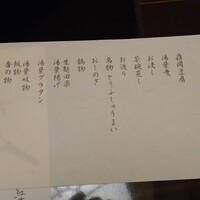 嶺岡豆腐
湯葉煮
お浸し
茶碗蒸し
お造り
名物 とうふしゅうまい
おしのぎ
鍋物
生麩田楽
湯葉揚げ
湯葉グラタン
湯葉吸物
飯物
香の物